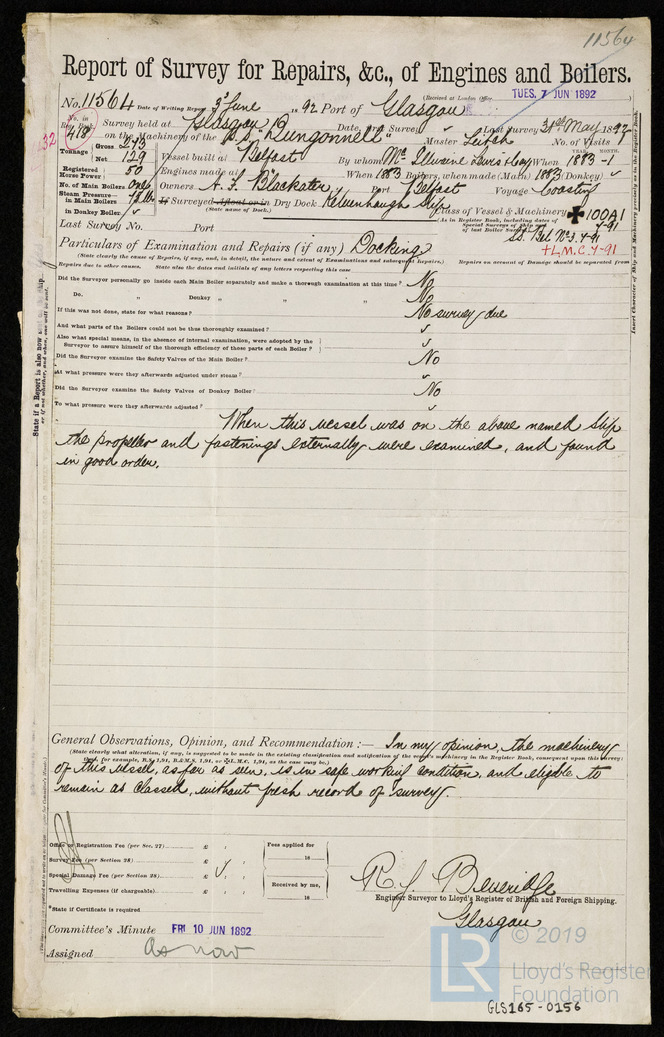 11564
Report of Survey for Repairs, &c., of Engines and Boilers.
(Received at London Office
TUES. 7 JUN 1892
No. 11564 Date of Writing Report 3rd June 1892 Port of Glasgow
No. in Reg. Book 418 Survey held at Glasgow Date, First Survey " Last Survey 31st May 1892
32
on the Machinery of the S.S. "Dungonnell" Master Leitch No. of Visits
Tonnage Gross 273
Net 129
Vessel built at Belfast By whom McIlwaine Lewis & Coy When 1883-1
YEAR. MONTH.
Registered Horse Power 50
Engines made at " When 1883 Boilers, when made (Main) 1883 (Donkey) "
No. of Main Boilers one
Owners A. F. Blackater Port Belfast Voyage Coasting
Steam Pressure—
in Main Boilers
in Donkey Boiler "
If Surveyed Afloat or in Dry Dock Kelvinhaugh Slip
(State name of Dock.)
Class of Vessel & Machinery ✠ 100A1
(As in Register Book, including dates of Special Surveys of ship and of last Boiler Survey)
4-91
Last Survey No. Port
SS. Bel No.3. 4-91
+L.M.C. 4-91
Particulars of Examination and Repairs (if any) Docking
(State clearly the cause of Repairs, if any, and, in detail, the nature and extent of Examinations and subsequent Repairs,) Repairs an account of Damage should be separated from
Repairs due to other causes. State also the dates and initials of any letters respecting this case
Did the Surveyor personally go inside each Main Boiler separately and make a thorough examination at this time? No
Do. " Donkey " " " No
If this was not done, state for what reasons? No survey due
And what parts of the Boilers could not be thus thoroughly examined? "
Also what special means, in the absence of internal examination, were adopted by the
Surveyor to assure himself of the thorough efficiency of those parts of each Boiler? "
Did the Surveyor examine the Safety Valves of the Main Boiler? No
At what pressure were they afterwards adjusted under steam? "
Did the Surveyor examine the Safety Valves of Donkey Boiler? No
To what pressure were they afterwards adjusted? "
When this vessel was on the above named slip
the propeller and fastenings externally were examined, and found
in good order.
General Observations, Opinion, and Recommendation :— In my opinion, the machinery
(State clearly what alteration, if any, is suggested to be made in the existing classification and notification of the vessel's machinery in the Register Book, consequent upon this survey;
of this vessel, as far as seen, is in safe working condition, and eligible to
remain as classed, without fresh record of survey.
Office or Registration Fee (per Sec. 27) £ : :
Survey Fee (per Section 28) £ : :
Special Damage Fee (per Section 28) £ : :
Travelling Expenses (if chargeable) £ : :
Fees applied for
18
Received by me,
18
*State if Certificate is required
R. J. Beveridge
Engineer Surveyor to Lloyd's Register of British and Foreign Shipping.
Glasgow
Committee's Minute FRI 10 JUN 1892
Assigned as now
LR © 2019
Lloyd's Register
Foundation
GLS165-0156